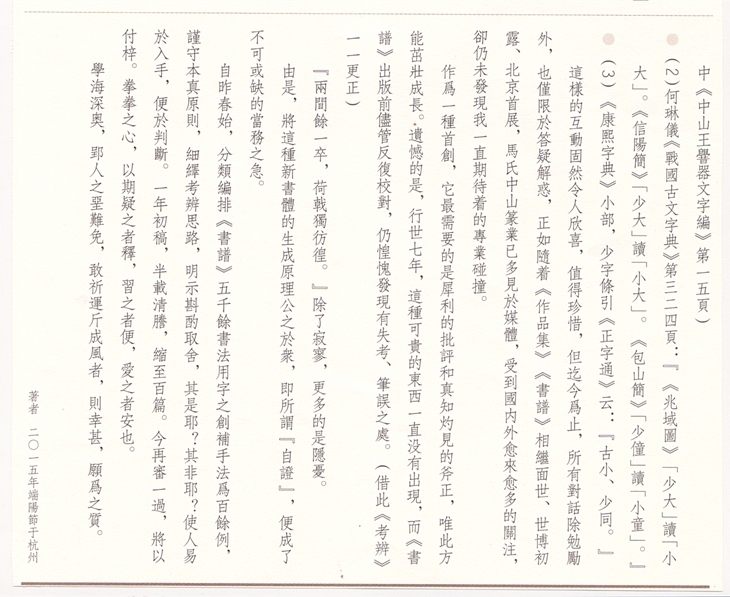 中《中山王譽器文字編》第一五頁)
(2)何琳儀《戰國古文字典》第三二四頁:『《兆域圖》「少大」讀「小
大」。《信陽簡》「少大」讀「小大」。《包山簡》「少僮」讀「小童」。』
(3)《康熙字典》小部,少字條引《正字通》云:『古小、少同。』
這樣的互動固然令人欣喜,值得珍惜,但迄今爲止,所有對話除勉勵
外,也僅限於答疑解惑,正如隨着《作品集》《書譜》相繼面世、世博初
露、北京首展,馬氏中山篆業已多見於媒體,受到國内外愈來愈多的關注,
卻仍未發現我一直期待着的專業碰撞。
作爲一種首創,它最需要的是犀利的批評和真知灼見的斧正,唯此方
能茁壯成長。遺憾的是,行世七年,這種可貴的東西一直没有出現,而《書
譜》出版前儘管反復校對,仍惶愧發現有失考、筆誤之處。(借此《考辨》
一一更正)
『兩間餘一卒,荷戟獨彷徨。』除了寂寥,更多的是隱憂。
由是,將這種新書體的生成原理公之於衆,即所謂『自證』,便成了
不可或缺的當務之急。
自昨春始,分類編排《書譜》五千餘書法用字之創補手法爲百餘例,
謹守本真原則,細繹考辨思路,明示斟酌取舍,其是耶?其非耶?使人易
於入手,便於判斷。一年初稿,半載清謄,縮至百篇。今再審一過,將以
付梓。拳拳之心,以期疑之者釋,習之者便,愛之者安也。
學海深奥,郢人之堊難免,敢祈運斤成風者,則幸甚,願爲之質。
著者 二〇一五年端陽節于杭州